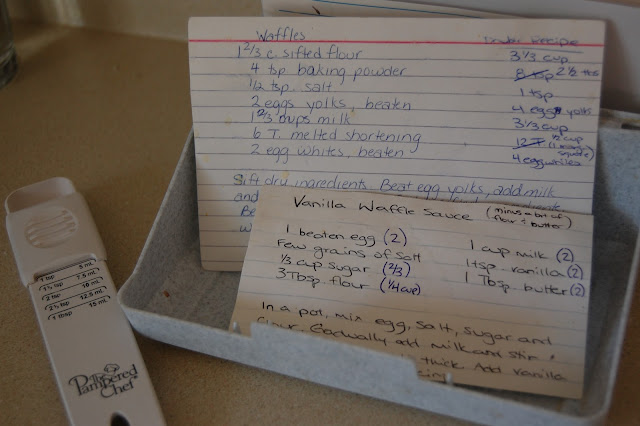 Waffles
Double Recipe
1 2/3 c. sifted flour
3 1/3 cup
4 tsp baking powder
8 tsp 2 1/2 tbs
1/2 tsp. salt
1 tsp
2 eggs yolks, beaten
4 eggs yolks
1 2/3 cups milk
3 1/3 cup
6 T. melted shortening
12 T 1/2 cup
2 egg whites, beaten
4 egg whites
Sift dry ingredients. Beat egg yolks, add milk
and
Be
w
Vanilla Waffle Sauce (minus a bit of
flour & butter)
1 beaten egg (2)
1 cup milk (2)
Few grains of salt
1 tsp. vanilla (2)
1/3 cup sugar (2/3)
1 Tbsp. butter (2)
3 Tbsp. flour (1/4 cup)
In a pot, mix egg, salt, sugar and
flour. Gradually add milk and stir
thick. Add vanilla
1 tsp 5 mL
1 1/2 tsp 7.5 mL
2 tsp 10 mL
2 1/2 tsp 12.5 mL
1 tbsp 15 mL
The Pampered
Chef